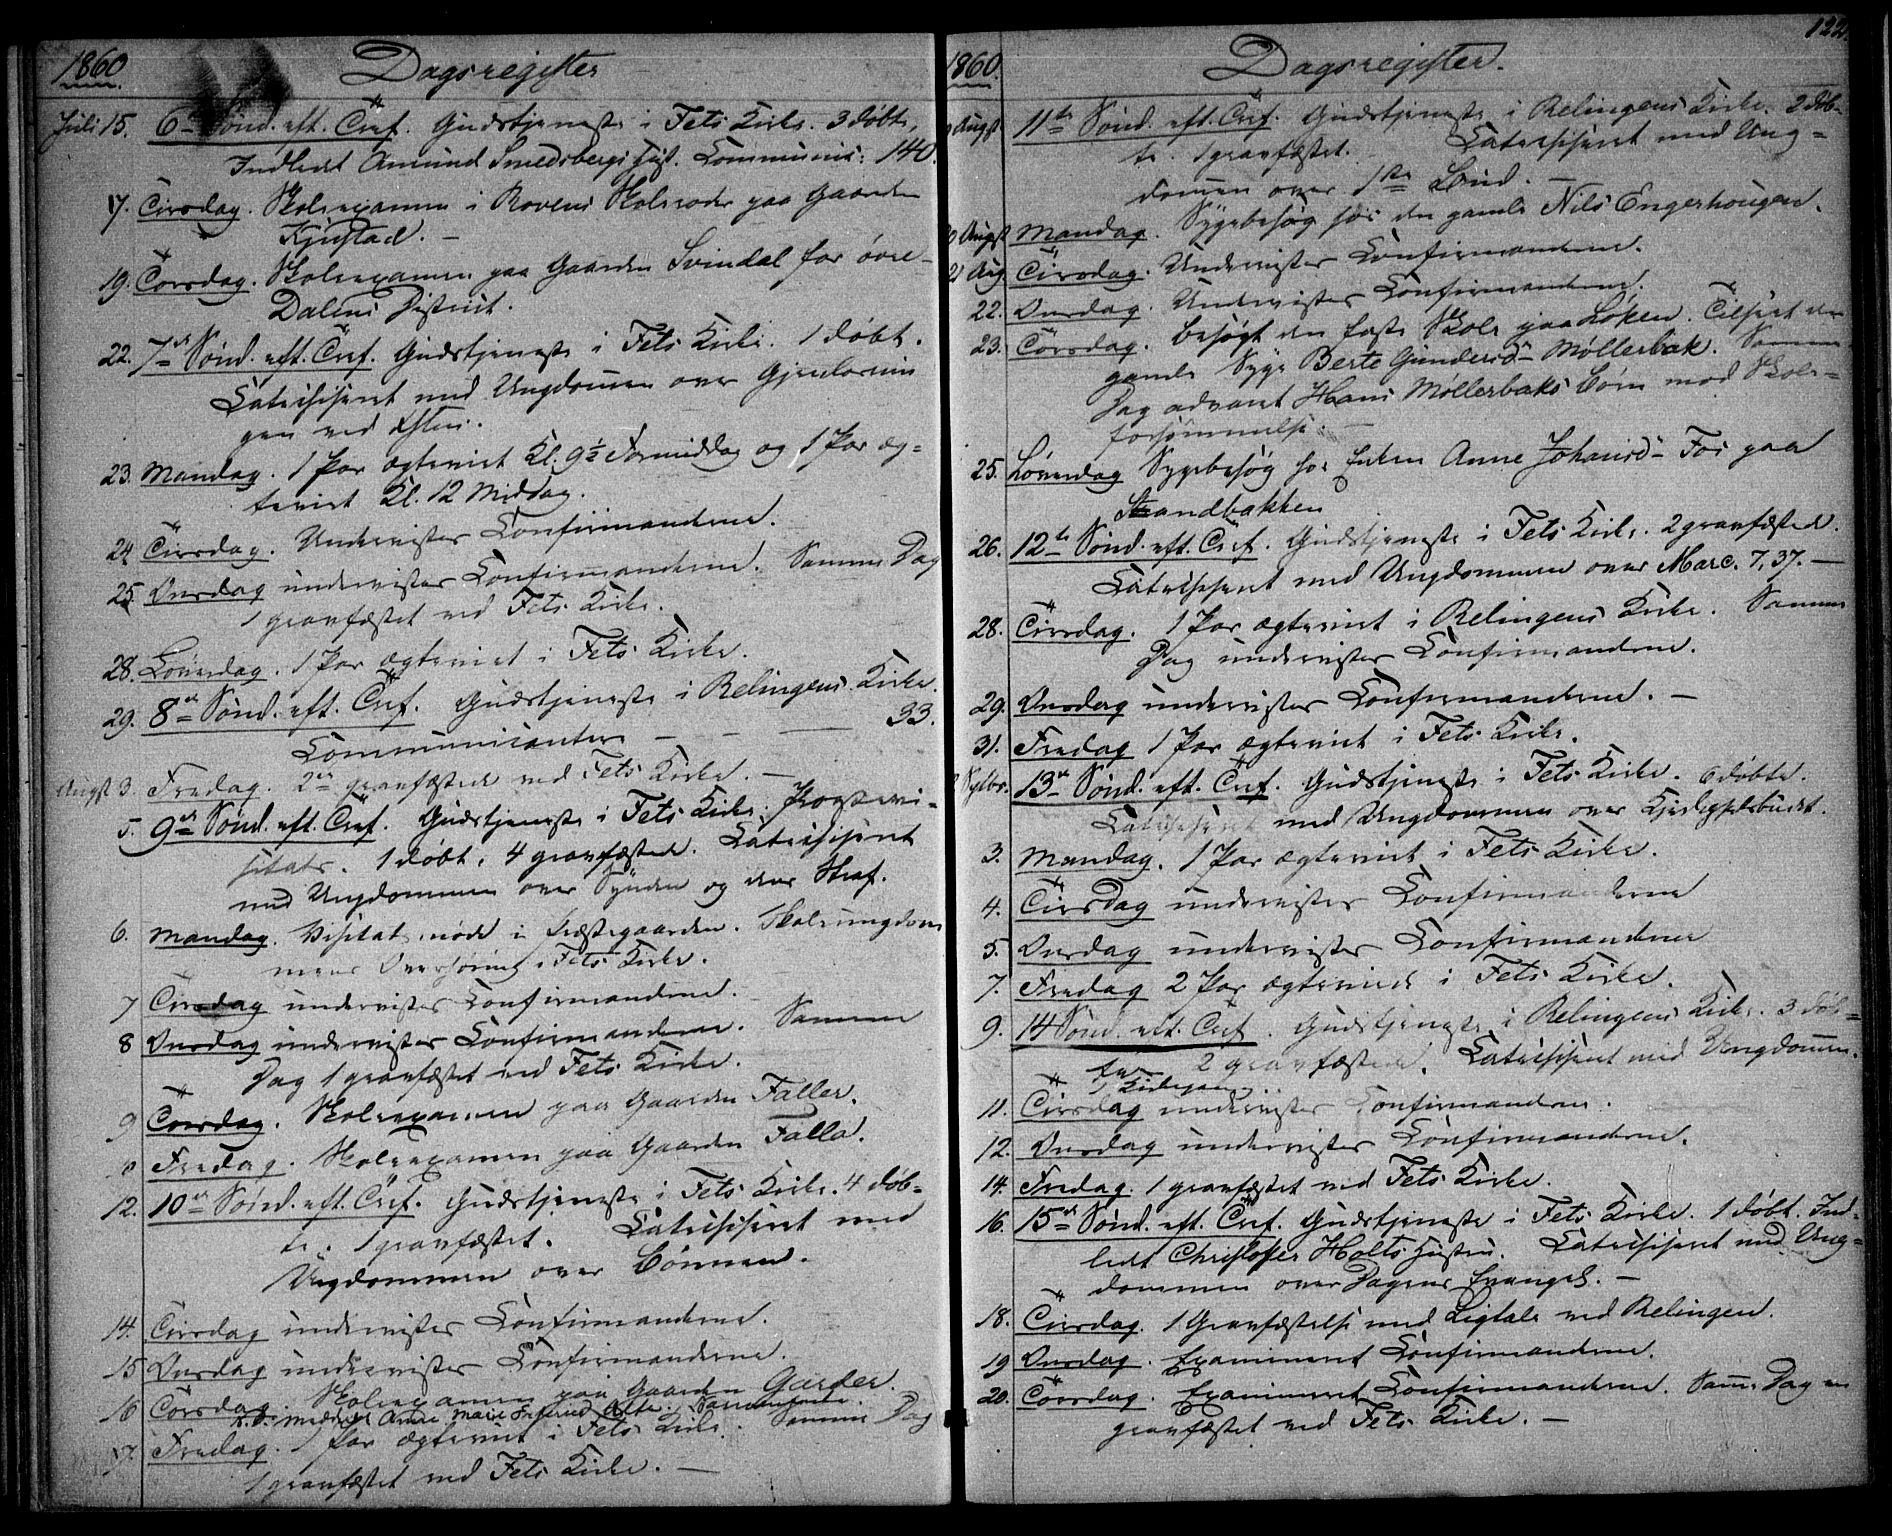 1860 Dagsregister
Juli 15. 6te Sønd. eft. Tref. Gudstjeneste i Fets Kirke. 3 døbte,
Indledet Amund Smedsbergs Hust. Communic: 140.
17. Tirsdag. Skoleexamen i Rovens Skolerode paa Gaarden
Kjustad. —
19. Torsdag. Skoleexamen paa Gaarden Svindal for øvre-
Dalens District.
22. 7de Sønd. eft. Tref. Gudstjeneste i Fets Kirke. 1 døbt.
Catechiseret med Ungdommen over Gjenløsnin
gen ved
23. Mandag. 1 Par ægteviet Kl. 9½ Formiddag og 1 Par æg-
teviet Kl. 12 Middag.
24. Tirsdag. Underviister Confirmanderne.
25. Onsdag underviister Confirmanderne. Samme Dag
1 gravfæstet ved Fets Kirke.
28. Løverdag. 1 Par ægteviet i Fets Kirke.
29. 8de Sønd. eft. Tref. Gudstjeneste i Relingens Kirke.
Communicanter — — — 33.
Augst 3. Fredag. 2de gravfæstede ved Fets Kirke. —
5. 9de Sønd. eft. Tref. Gudstjeneste i Fets Kirke. Provstevi-
sitats. 1 døbt. 4 gravfæstede. Catechiseret
med Ungdommen over Synden og dens Straf.
6. Mandag. Visitatsmøde i Præstegaarden. Skoleungdom
mens Overhøring i Fets Kirke.
7 Tirsdag underviister Confirmanderne.
8 Onsdag underviister Confirmanderne. Samme
Dag 1 gravfæstet ved Fets Kirke.
9 Torsdag. Skoleexamen paa Gaarden Faller.
Fredag. Skoleexamen paa Gaarden Falla.
12. 10de Sønd. eft. Tref. Gudstjeneste i Fets Kirke. 4 døb-
te. 1 gravfæstet. Catechiseret med
Ungdommen over Bønnen.
14. Tirsdag underviister Confirmanderne.
15 Onsdag underviister Confirmanderne.
16 Torsdag. Skoleexamen paa Gaarden Garder.
Anne Marie
17. Fredag. 1 Par ægteviet i Fets Kirke. Samme Dag
1 gravfæstet ved Fets Kirke. —
1860. Dagsregister. 122
Augst 11te Sønd. eft. Tref. Gudstjeneste i Relingens Kirke. 2 døb-
te. 1 gravfæstet. Catechiseret med Ung-
dommen over 1ste Bud. —
Augst Mandag. Sygebesøg hos den gamle Nils Engerhougen.
21 Aug. Tirsdag. Underviister Confirmanderne.
22. Onsdag. Underviister Confirmanderne.
23. Torsdag. besøgt den faste Skole paa Løken. Tilseet den
gamle Syge Berte Gundersd- Møllerbak. Samme
Dag advaret Hans Møllerbaks Børn mod Skole-
forsømmelse. —
25. Løverdag Sygebesøg hos Enken Anne Johansd- Fos paa
Strandbakken
26. 12te Sønd. eft. Tref. Gudstjeneste i Fets Kirke. 2 gravfæstede.
Catechiseret med Ungdommen over Marc. 7, 37. —
28. Tirsdag. 1 Par ægteviet i Relingens Kirke. Samme
Dag underviister Confirmanderne.
29. Onsdag underviister Confirmanderne. —
31. Fredag 1 Par ægteviet i Fets Kirke.
Sptbr. 13de Sønd. eft. Tref. Gudstjeneste i Fets Kirke. 6 døbte.
Catechiseret med Ungdommen over Kjerlighedsbudet.
3. Mandag. 1 Par ægteviet i Fets Kirke.
4. Tirsdag underviister Confirmanderne
5. Onsdag underviister Confirmanderne
7. Fredag 2 Par ægteviede i Fets Kirke.
9. 14 Sønd. eft. Tref. Gudstjeneste i Relingens Kirke. 3 døb-
te 2 gravfæstede. Catechiseret med Ungdommen.
1 Kirkegang
11. Tirsdag underviister Confirmanderne.
12. Onsdag underviister Confirmanderne.
14. Fredag. 1 gravfæstet ved Fets Kirke.
16. 15de Sønd. eft. Tref. Gudstjeneste i Fets Kirke. 1 døbt. Ind-
ledt Christoffer Holts Hustru. Catechiseret med Ung-
dommen over Dagens Evangel. —
18. Tirsdag. 1 Gravfæstelse med Ligtale ved Relingen.
19 Onsdag. Examineret Confirmanderne.
20. Torsdag. Examineret Confirmanderne. Samme Dag en
gravfæstet ved Fets Kirke. —